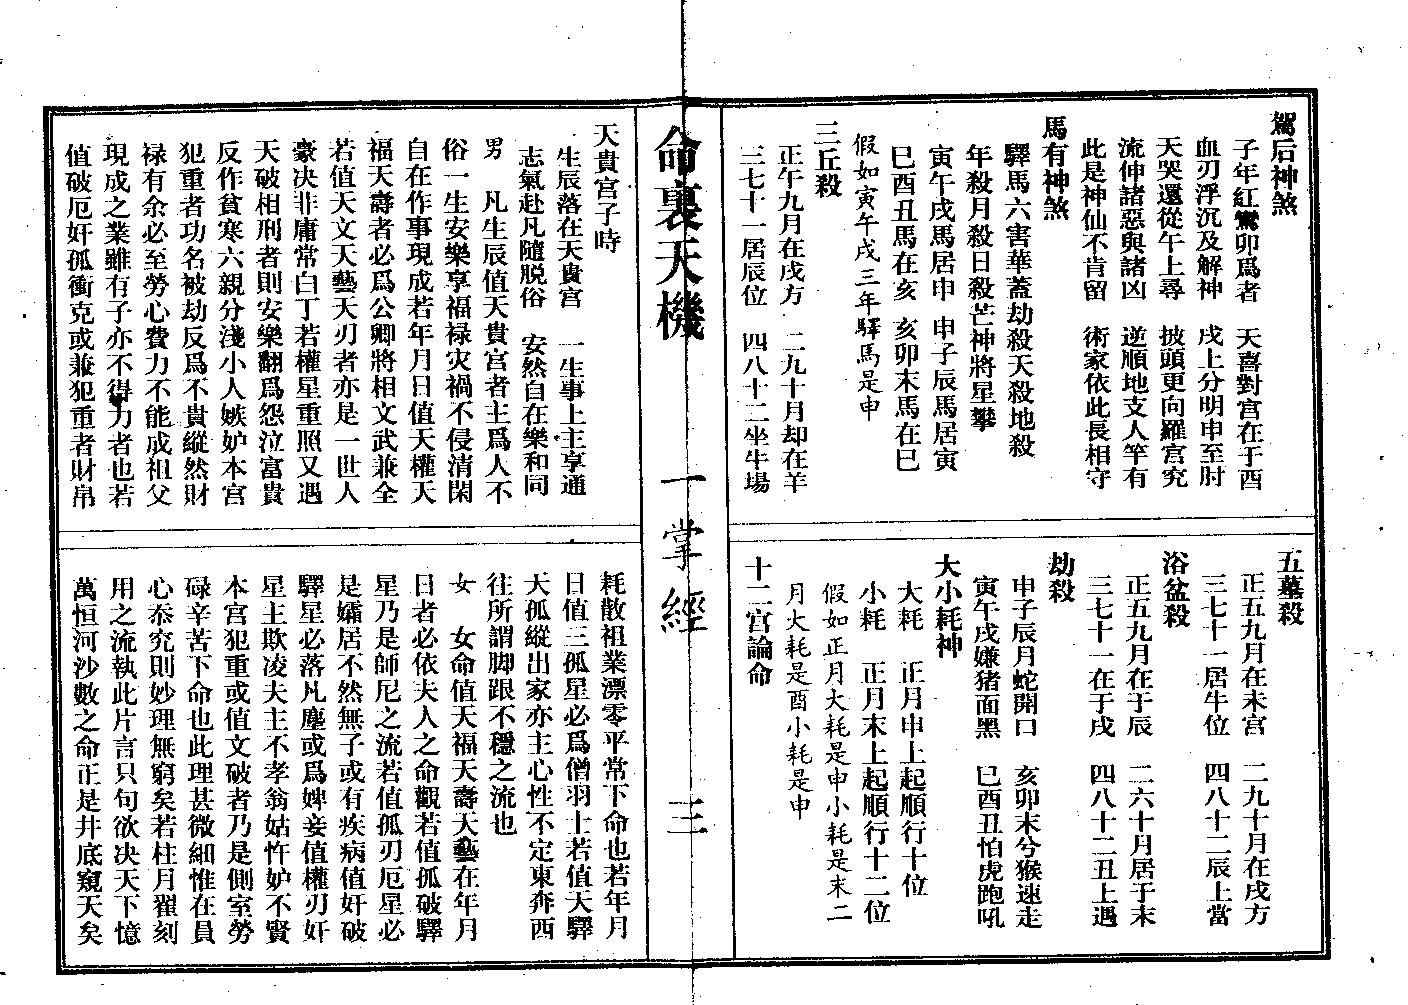 駕后神煞
子年紅鸞卯爲者　天喜對宮在于酉
血刃浮沉及解神　戌上分明申至肘
天哭還從午上尋　披頭更向羅宮究
流仲諸惡與諸凶　逆順地支人竿有
此是神仙不肯留　術家依此長相守
馬有神煞
驛馬六害華蓋劫殺天殺地殺
年殺月殺日殺芒神將星攀
寅午戌馬居申　申子辰馬居寅
巳酉丑馬在亥　亥卯末馬在巳
假如寅午戌三年驛馬是申
三丘殺
正午九月在戌方　二九十月却在羊
三七十一居辰位　四八十二坐牛場
五墓殺
正五九月在未宮　二九十月在戌方
三七十一居牛位　四八十二辰上當
浴盆殺
正五九月在于辰　二六十月居于末
三七十一在于戌　四八十二丑上遇
劫殺
申子辰月蛇開口　亥卯末兮猴速走
寅午戌嫌猪面黑　巳酉丑怕虎跑吼
大小耗神
大耗　正月申上起順行十位
小耗　正月末上起順行十二位
假如正月大耗是申小耗是末二
月火耗是酉小耗是申
十二宮論命
命裏天機　一掌經　三
天貴宮子時
生辰落在天貴宮　一生事上主享通
志氣赴凡隨脱俗　安然自在樂和同
男　凡生辰值天貴宮者主爲人不
俗一生安樂享福祿灾禍不侵清閑
自在作事現成若年月日值天權天
福天壽者必爲公卿將相文武兼全
若值天文天藝天刃者亦是一世人
豪决非庸常白丁若權星重照又遇
天破相刑者則安樂翻爲怨泣富貴
反作貧寒六親分淺小人嫉妒本宮
犯重者功名被劫反爲不貴縱然財
禄有余必至勞心費力不能成祖父
現成之業雖有子亦不得力者也若
值破厄奸孤衝克或兼犯重者財帛
耗散祖業漂零平常下命也若年月
日值三孤星必爲僧羽士若值天驛
天孤縱出家亦主心性不定東奔西
往所謂脚跟不穩之流也
女　女命值天福天壽天藝在年月
日者必依夫人之命觀若值孤破驛
星乃是師尼之流若值孤刃厄星必
是孀居不然無子或有疾病值奸破
驛星必落凡塵或爲婢妾值權刃奸
星主欺凌夫主不孝翁姑忤妒不賢
本宮犯重或值文破者乃是側室勞
碌辛苦下命也此理甚微細惟在員
心叅究則妙理無窮矣若柱月翟刻
用之流執此片言只句欲决天下憶
萬恒河沙數之命正是井底窺天矣